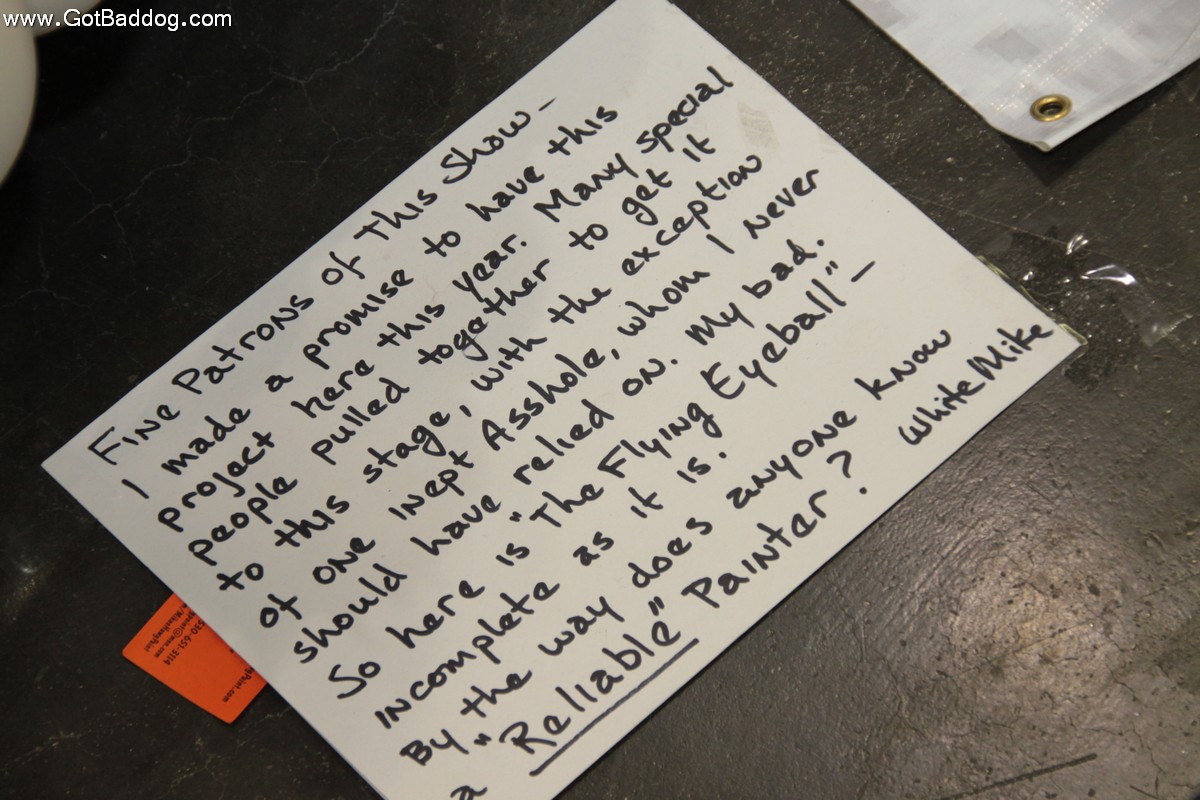 www.GotBaddog.com
FINE PATRONS of THIS SHOW-
I made a promise to have this
project here this year. Many special
people pulled together to get it
to this stage, with the exception
of one inept Asshole, whom I never
should have relied on. My bad.
So here is "The Flying Eyeball"-
incomplete as it is.
By the way does anyone know
a "Reliable" Painter?
White Mike
530-651-3114